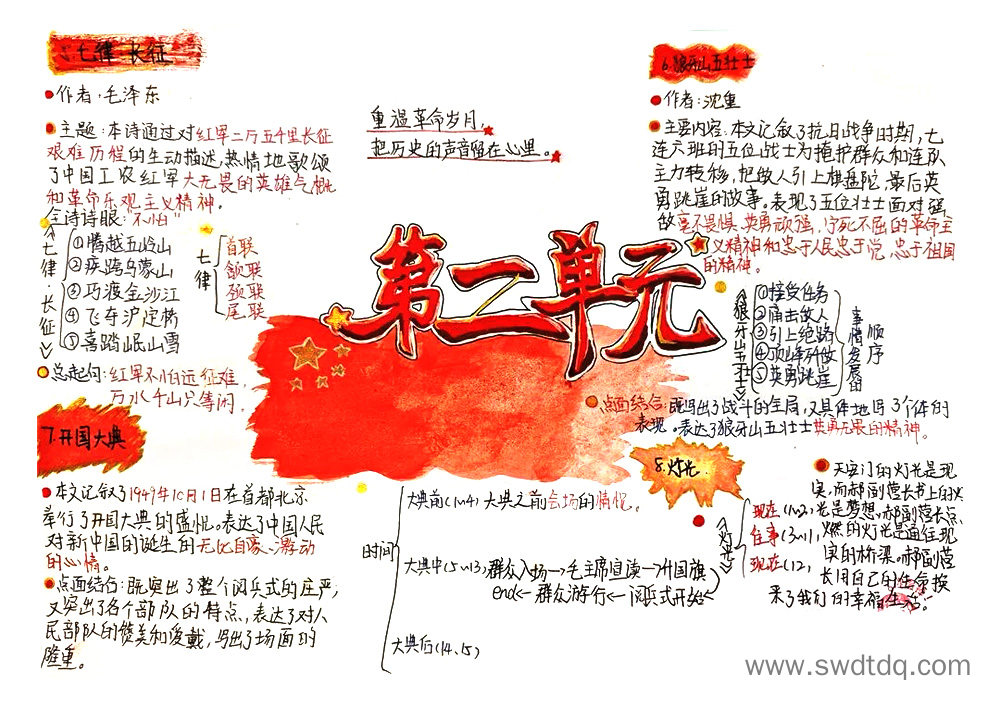 5.七律·长征
作者:毛泽东
主题:本诗通过对红军二万五千里长征
艰难历程的生动描述,热情地歌颂
了中国工农红军大无畏的英雄气概
和革命乐观主义精神。
全诗诗眼:"不怕"
《七律·长征》
①腾越五岭山
②疾跨乌蒙山
③巧渡金沙江
④飞夺泸定桥
⑤喜踏岷山雪
七律
首联
颔联
颈联
尾联
总起句:红军不怕远征难,
万水千山只等闲。
重温革命岁月,
把历史的声音留在心里。
第二单元
6.狼牙山五壮士
作者:沈重
主要内容:本文记叙了抗日战争时期,七
连六班的五位战士为掩护群众和连队
主力转移,把敌人引上棋盘陀,最后英
勇跳崖的故事。表现了五位壮士面对强
敌毫不畏惧、英勇顽强,宁死不屈的革命主
义精神和忠于人民忠于党,忠于祖国
的精神。
《狼牙山五壮士》
①接受任务
②痛击敌人
③引上绝路
④顶峰歼敌
⑤英勇跳崖
事情发展的
顺序
点面结合:既写出了战斗的全局,又具体地写了个体的
表现。表达了狼牙山五壮士英勇无畏的精神。
7.开国大典
本文记叙了1949年10月1日在首都北京
举行了开国大典的盛况。表达了中国人民
对新中国的诞生的无比自豪、激动
的心情。
点面结合:既突出了整个阅兵式的庄严,
又突出了各个部队的特点,表达了对人
民部队的赞美和爱戴,写出了场面的
隆重。
时间
大典前(1、4)大典之前会场的情况。
大典中(5、13)群众入场→毛主席宣读→升国旗
end←群众游行←阅兵式开始
大典后(14、15)
8.灯光
《灯光》
现在(1、2)
往事(3、11)
现在(12)
天安门的灯光是现
实,而郝副营长书上的灯
光是梦想,郝副营长点
燃的灯光是通往现
实的桥梁。郝副营
长用自己的生命换
来了我们的幸福生活。
www.swdtdq.com